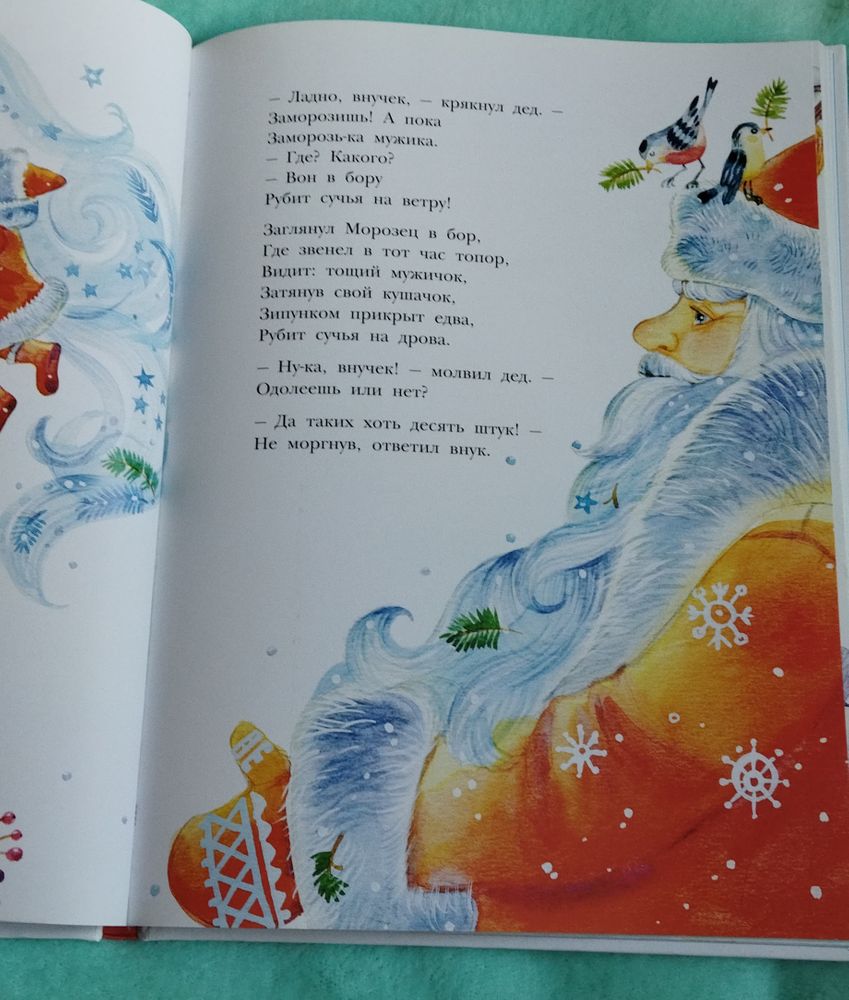 — Ладно, внучек, — крякнул дед. —
Заморозишь! А пока
Заморозь-ка мужика.
— Где? Какого?
— Вон в бору
Рубит сучья на ветру!
Заглянул Морозец в бор,
Где звенел в тот час топор,
Видит: тощий мужичок,
Затянув свой кушачок,
Зипунком прикрыт едва,
Рубит сучья на дрова.
— Ну-ка, внучек! — молвил дед. —
Одолеешь или нет?
— Да таких хоть десять штук! —
Не моргнув, ответил внук.